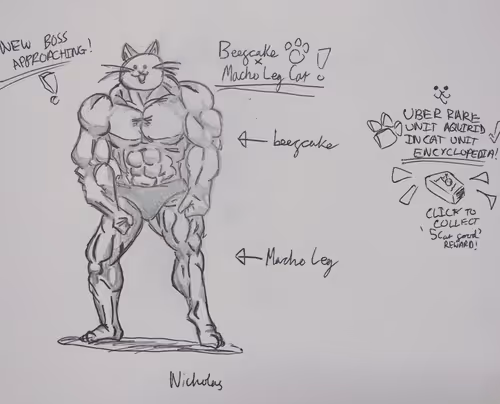 NEW BOSS
APPROACHING!
Beegcake
x
Macho Leg Cat
!
beegcake
Macho Leg
Nicholas
UBER RARE
UNIT AQUIRID
IN CAT UNIT
ENCYCLOPEDIA!
CLICK TO
COLLECT
'5 Cat food'
REWARD!